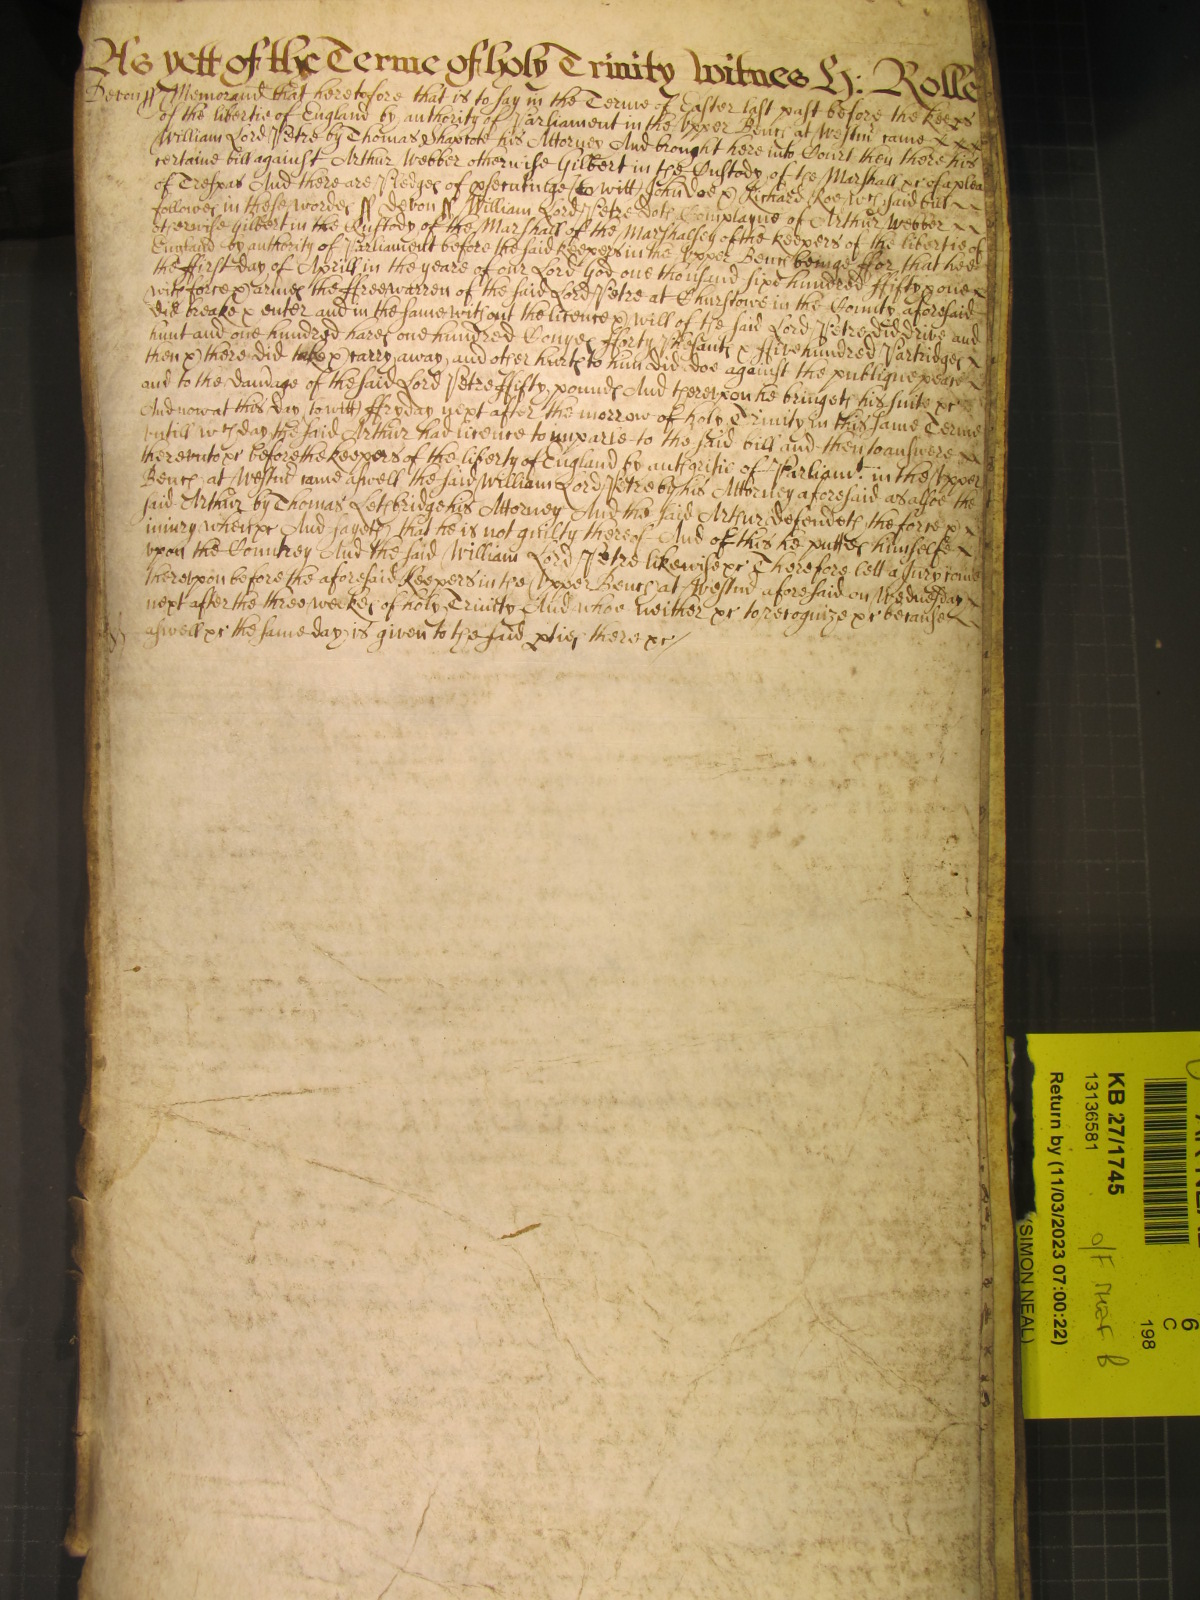 As yett of the Terme of holy Trinity Witnes H: Rolle
Devon ss Memorand that heretofore that is to say in the Terme of Easter last past before the keeps
of the libertie of England by authority of Parliament in the Upper Bench at Westm came
William Lord Petre by Thomas Shapcote his Attorney And brought here into Court then there his
certaine bill against Arthur Webber otherwise Gilbert in the Custody of the Marshall &c of a plea
of Trespas And there are Pledges of psecutinge (to witt) John Doe & Richard Roe wch said bill
followes in these wordes ss Devon ss William Lord Petre doth Complayne of Arthur Webber
otherwise Gilbert in the Custody of the Marshall of the Marshalsey of the keepers of the libertie of
England by authority of Parliament before the said keepers in the Upper Bench beinge ffor that hee
the ffirst day of Aprill in the yeare of our Lord God one thousand sixe hundred ffifty & one
with force & armes the ffree warren of the said Lord Petre at Churstowe in the County aforesaid
did breake & enter and in the same without the licence & will of the said Lord Petre did drive and
hunt and one hundred hares one hundred Conyes fforty Phesants & ffive hundred Partridges
then & there did take & carry away and other hurts to him did doe against the publique peace
and to the damage of the said Lord Petre ffifty pounds And thereupon he bringeth his suite &c
And now at this day (to witt) ffryday next after the morrow of holy Trinity in this same Terme
untill wch day the said Arthur had licence to imparle to the said bill and then to answere
thereunto &c before the keepers of the liberty of England by authoritie of Parliamt: in the Upper
Bench at Westm came aswell the said William Lord Petre by his Attorney aforesaid as alsoe the
said Arthur by Thomas Lethbridge his Attorney And the said Arthur defendeth the force &
iniury when &c And sayeth that he is not guilty thereof And of this he putteth himselfe
upon the Countrey And the said William Lord Petre likewise &c Therefore lett a Jury come
thereupon before the aforesaid Keepers in the Upper Bench at Westm aforesaid on Wednesday
next after the three weekes of holy Trinity And whoe neither &c to recognize &c because
aswell &c the same day is given to the said pties there &c
KB 27/1745
13136581
Return by (11/03/2023 07:00:22)
(SIMON NEAL)
6
C
198